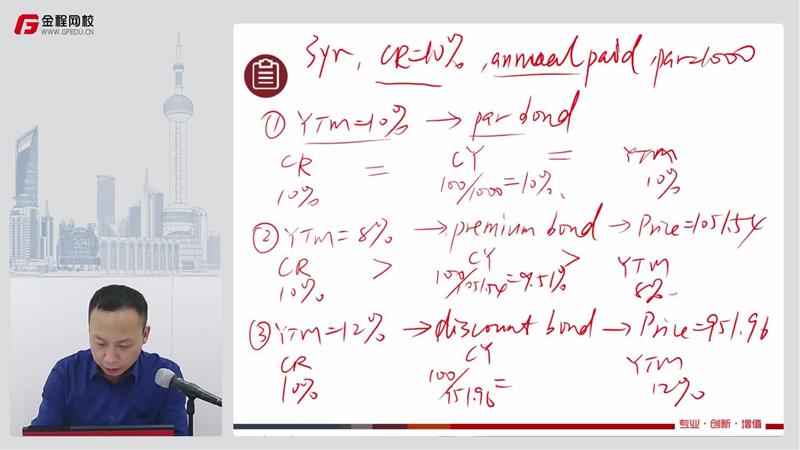 金程网校
WWW.GFEDU.CN
3yr, CR=10%, annual paid, par=1000
① YTM=10% → par bond
CR = CY = YTM
10% 100/1000=10%. 10%
② YTM=8% → premium bond → Price=1051.54
CR > CY > YTM
10% 100/1051.54=9.51% 8%
③ YTM=12% → discount bond → Price=951.96
CR CY YTM
10% 100/951.96= 12%
专业·创新·增值